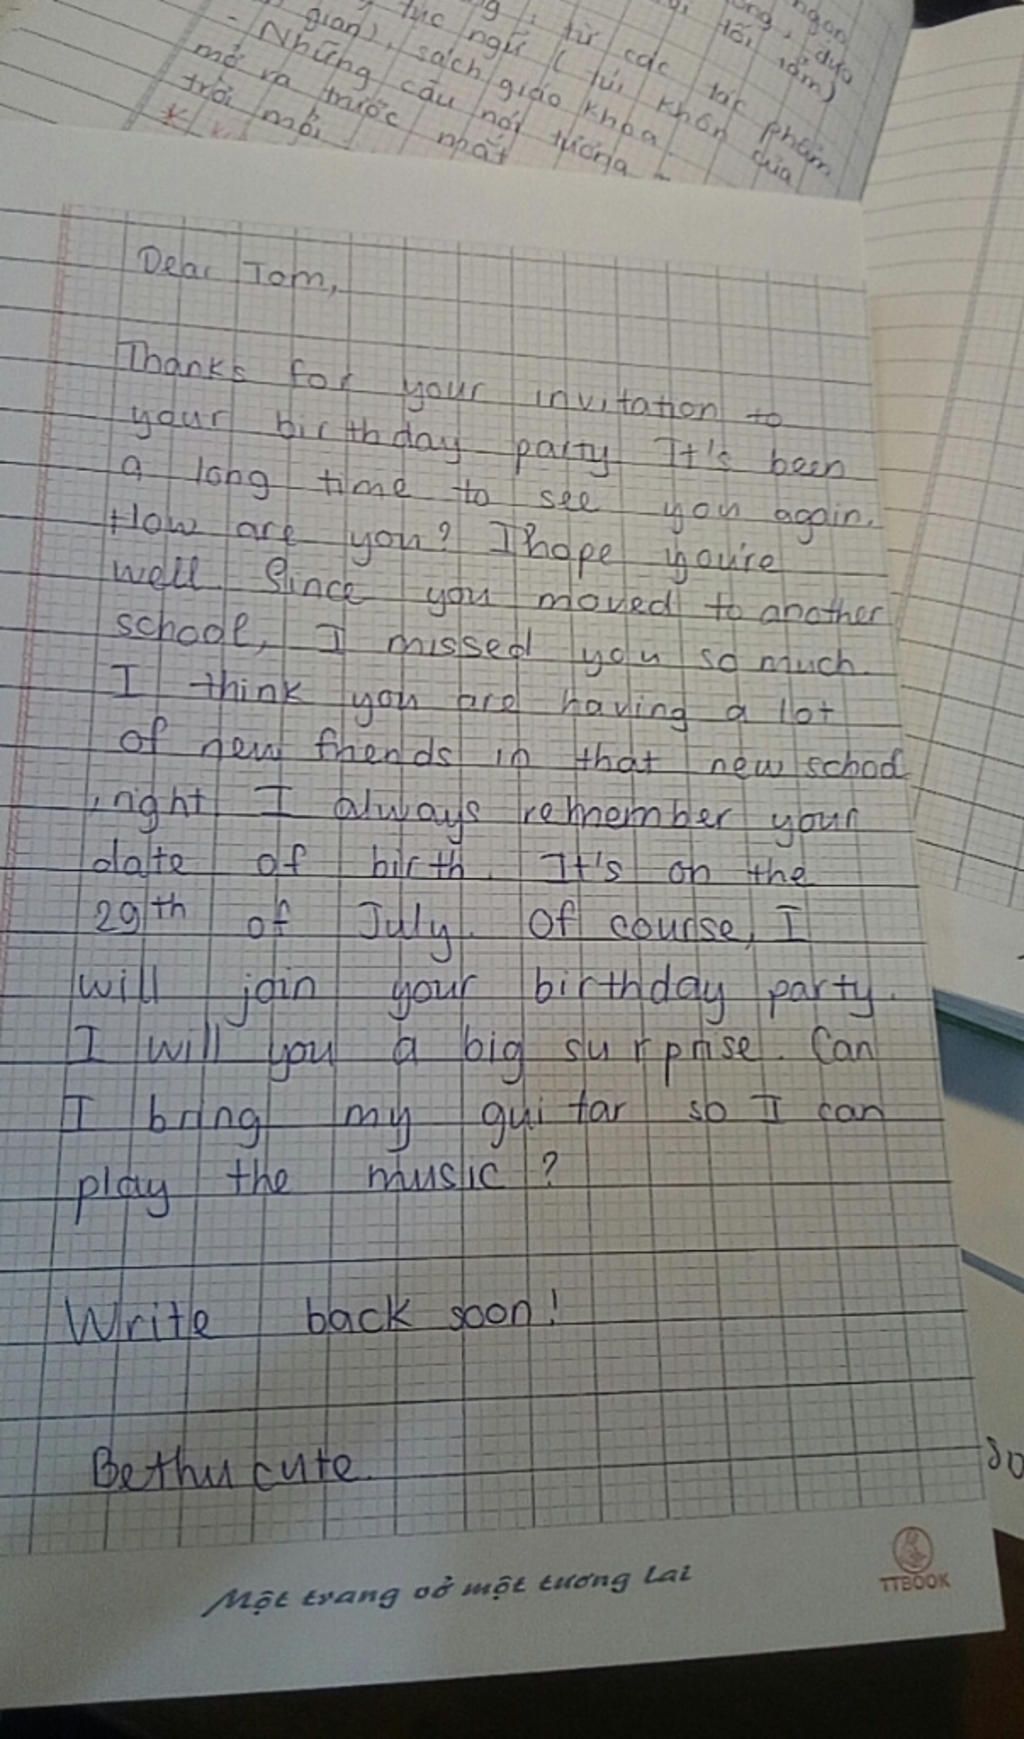 ngon
dựa
tối tăm)
gian), tục ngữ ( túi khôn của
từ các tác phẩm
sách giáo khoa
- Những câu nói tưởng
mở ra trước nhất
trời mỗi
Dear Tom,
Thanks for your invitation to
your birthday party It's been
a long time to see you again.
How are you? I hope you're
well. Since you moved to another
school, I missed you so much.
I think you are having a lot
of new friends in that new school
, right I always remember your
date of birth. It's on the
29th of July. Of course, I
will join your birthday party.
I will you a big surprise. Can
I bring my guitar so I can
play the music ?
Write back soon!
Bethu cute.
Một trang vở một tương lai
TTBOOK